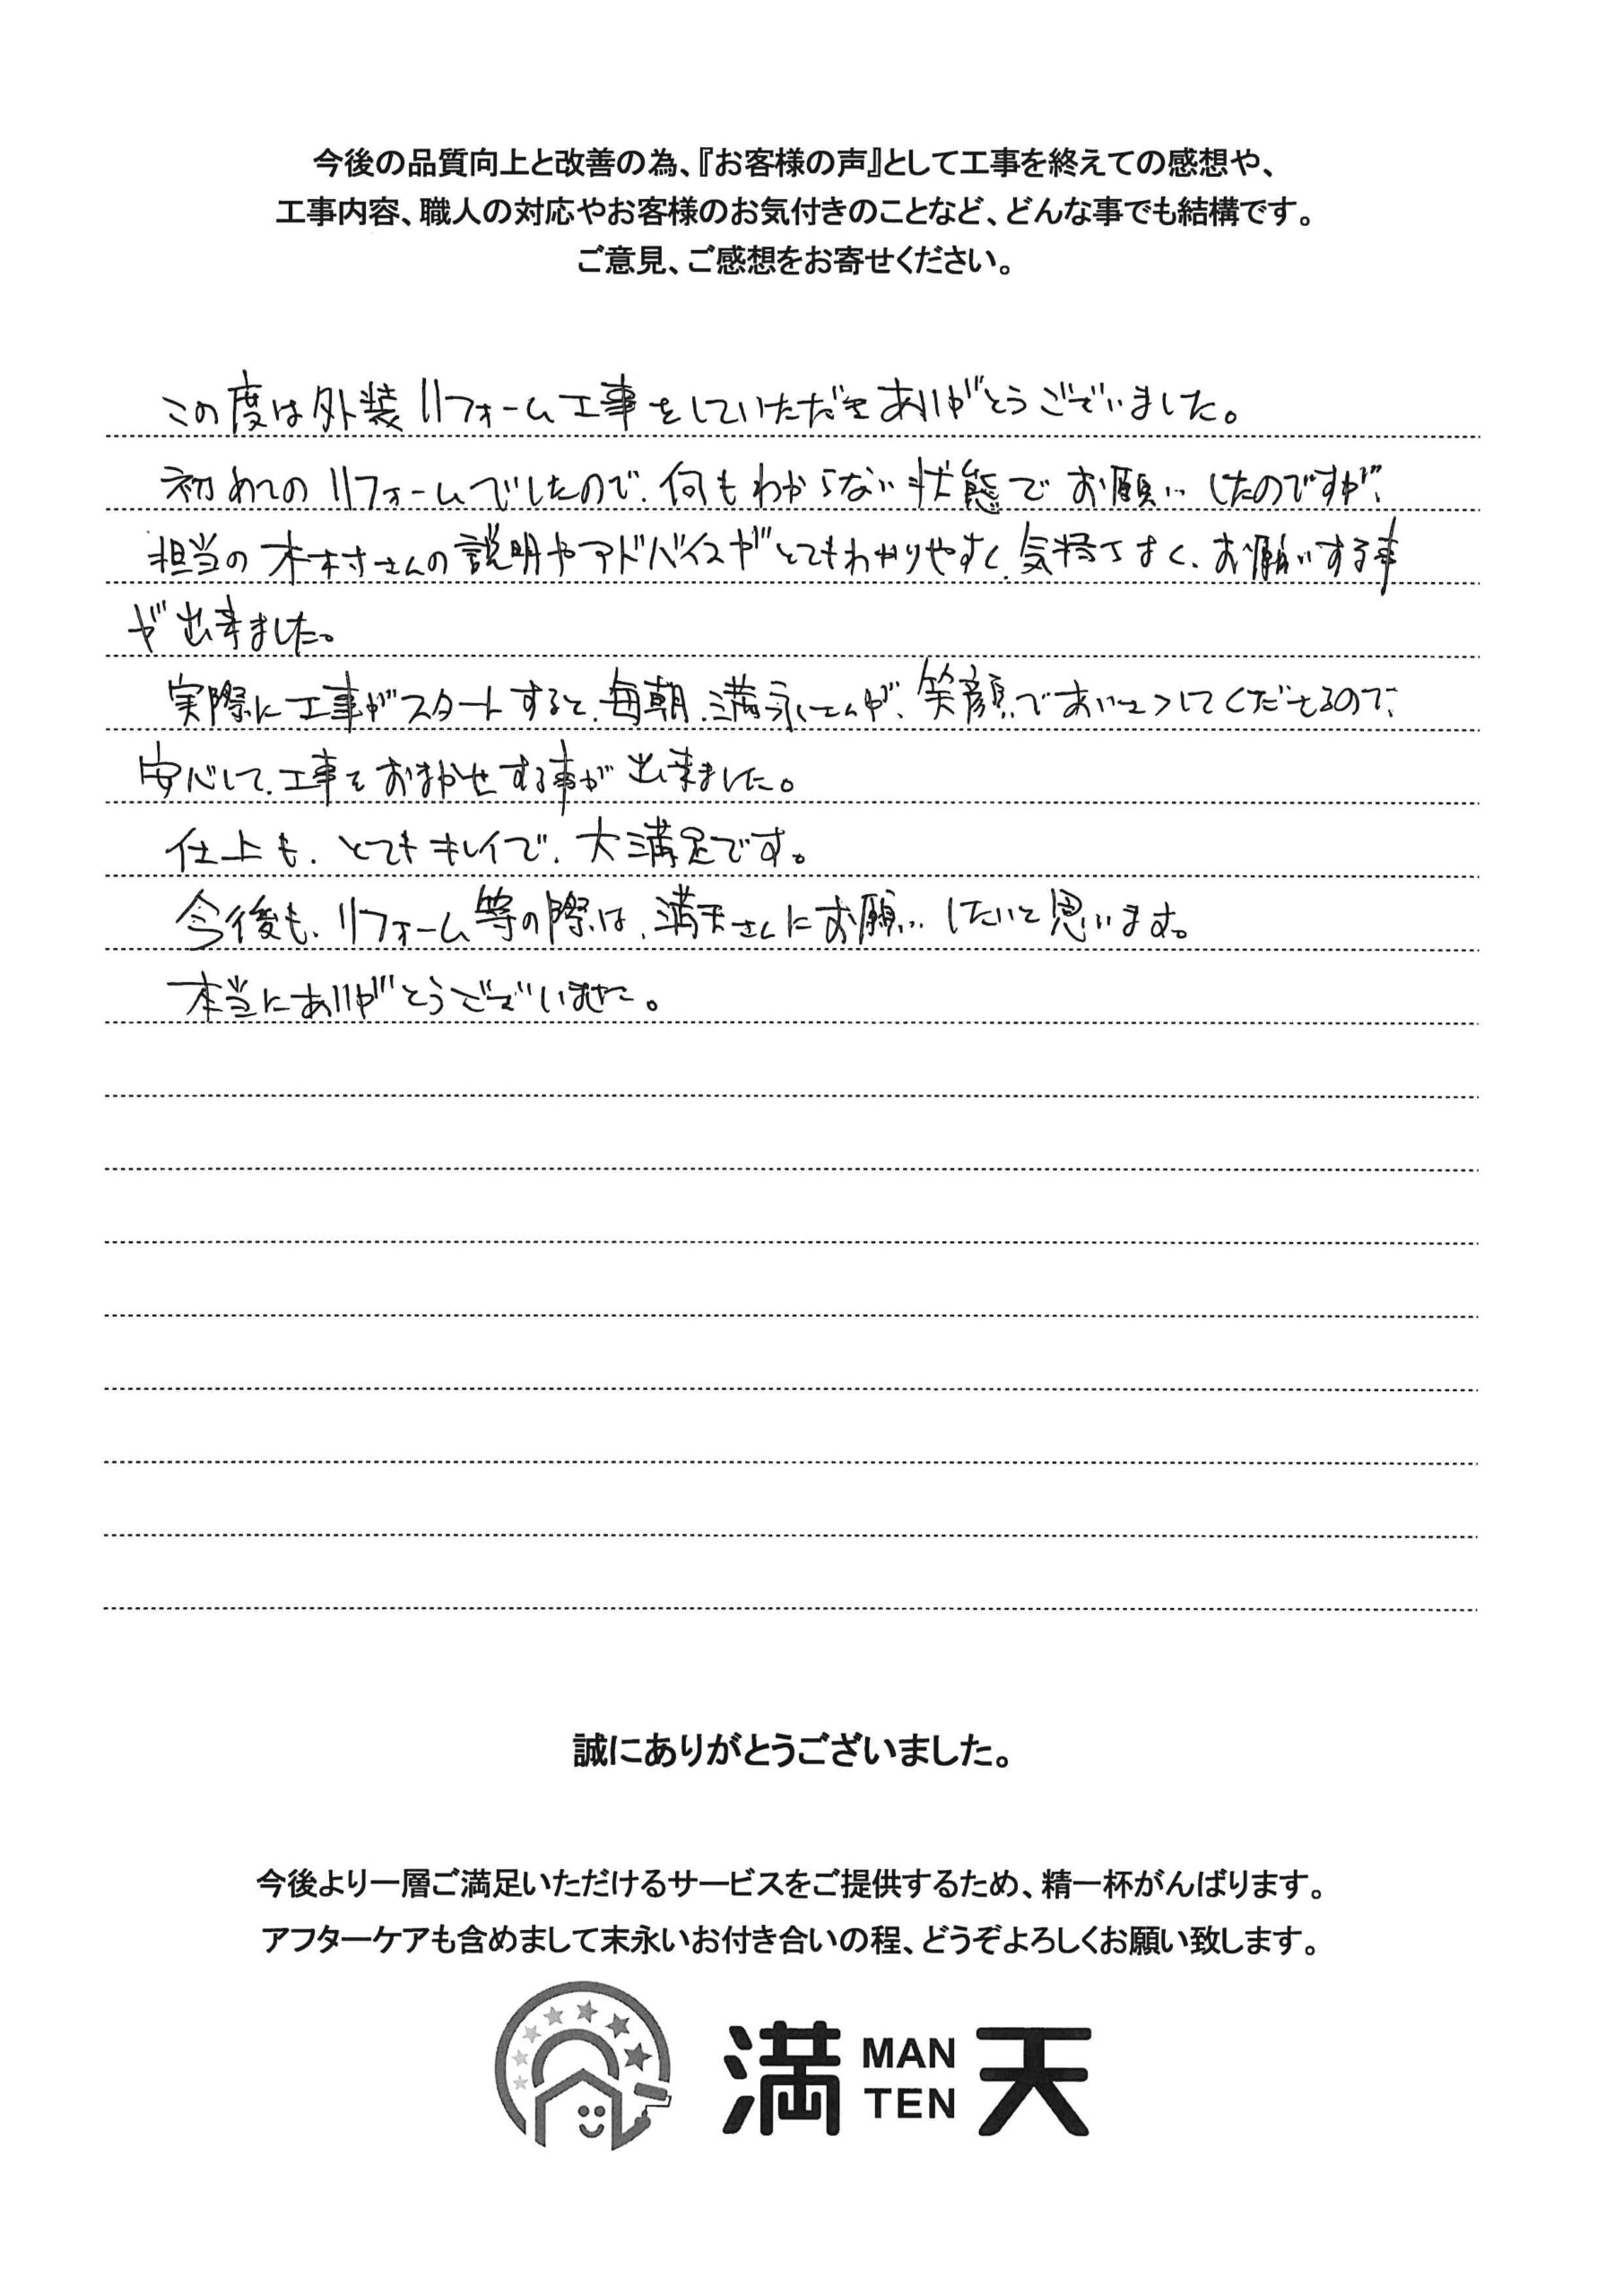 今後の品質向上と改善の為、『お客様の声』として工事を終えての感想や、
工事内容、職人の対応やお客様のお気付きのことなど、どんな事でも結構です。
ご意見、ご感想をお寄せください。
この度は外装リフォーム工事をしていただきありがとうございました。
初めてのリフォームでしたので、何もわからない状態でお願いしたのですが、
担当の木村さんの説明やアドバイスがとてもわかりやすく、気持ちよく、お願いする事
が出来ました。
実際に工事がスタートすると、毎朝、満永さんが、笑顔であいさつしてくださるので、
安心して、工事をおまかせする事が出来ました。
仕上も、とてもキレイで、大満足です。
今後も、リフォーム等の際は、満天さんにお願いしたいと思います。
本当にありがとうございました。
誠にありがとうございました。
今後より一層ご満足いただけるサービスをご提供するため、精一杯がんばります。
アフターケアも含めまして末永いお付き合いの程、どうぞよろしくお願い致します。
満 MAN TEN 天